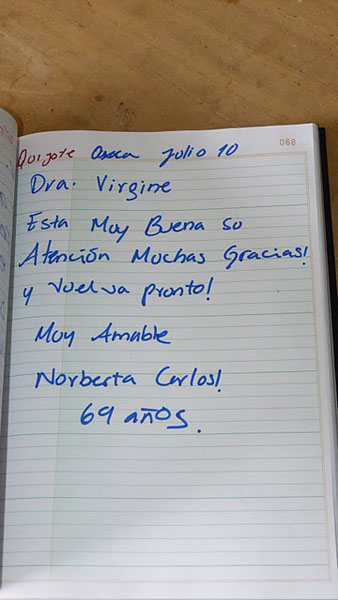 068
Quijote Oaxaca Julio 10
Dra. Virgine
Esta Muy Buena su
Atención Muchas Gracias!
y Vuelva pronto!
Muy Amable
Norberta Carlos!
69 años.